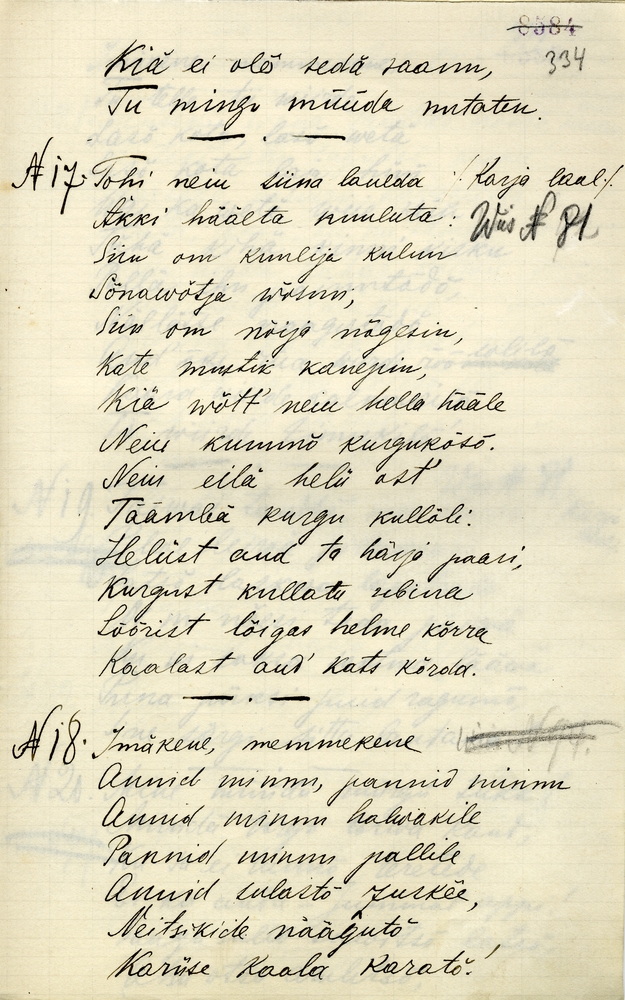 8584
334
Kiä ei olõ sedä saanu,
Tu mingu müüda nutaten.
№ 17. Tohi neiu siina laulda /: Karja laul :/
Äkki häälta kuuluta: Wiis № 81
Siin om kuulija kulun
Sõnawõtja wõsun,
Siin om nõija nõgesin,
Kate mustik kanepin,
Kiä wõtt' neiu hella hääle
Neiu kummõ kurgukõsõ.
Neiu eilä helü ost'
Täämbä kurgu kullõli.
Helüst and ta härjä paari,
Kurgust kullatu ubina
Sõõrist lõigas helme kõrra
Kaalast and' kats kõrda.
№ 18. Imäkene, memmekene
Annid minnu, pannid minnu
Annid minnu halwakile
Pannid minnu pallile
Annid sulastõ zuskõe,
Neitsikide näägutõ
Karüse kaala karatõ!